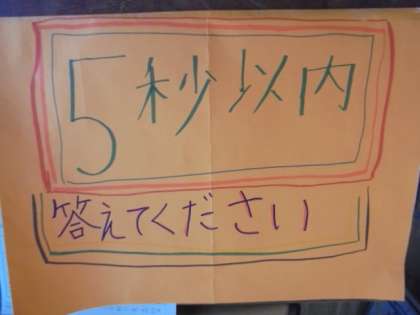 5秒以内
答えてください